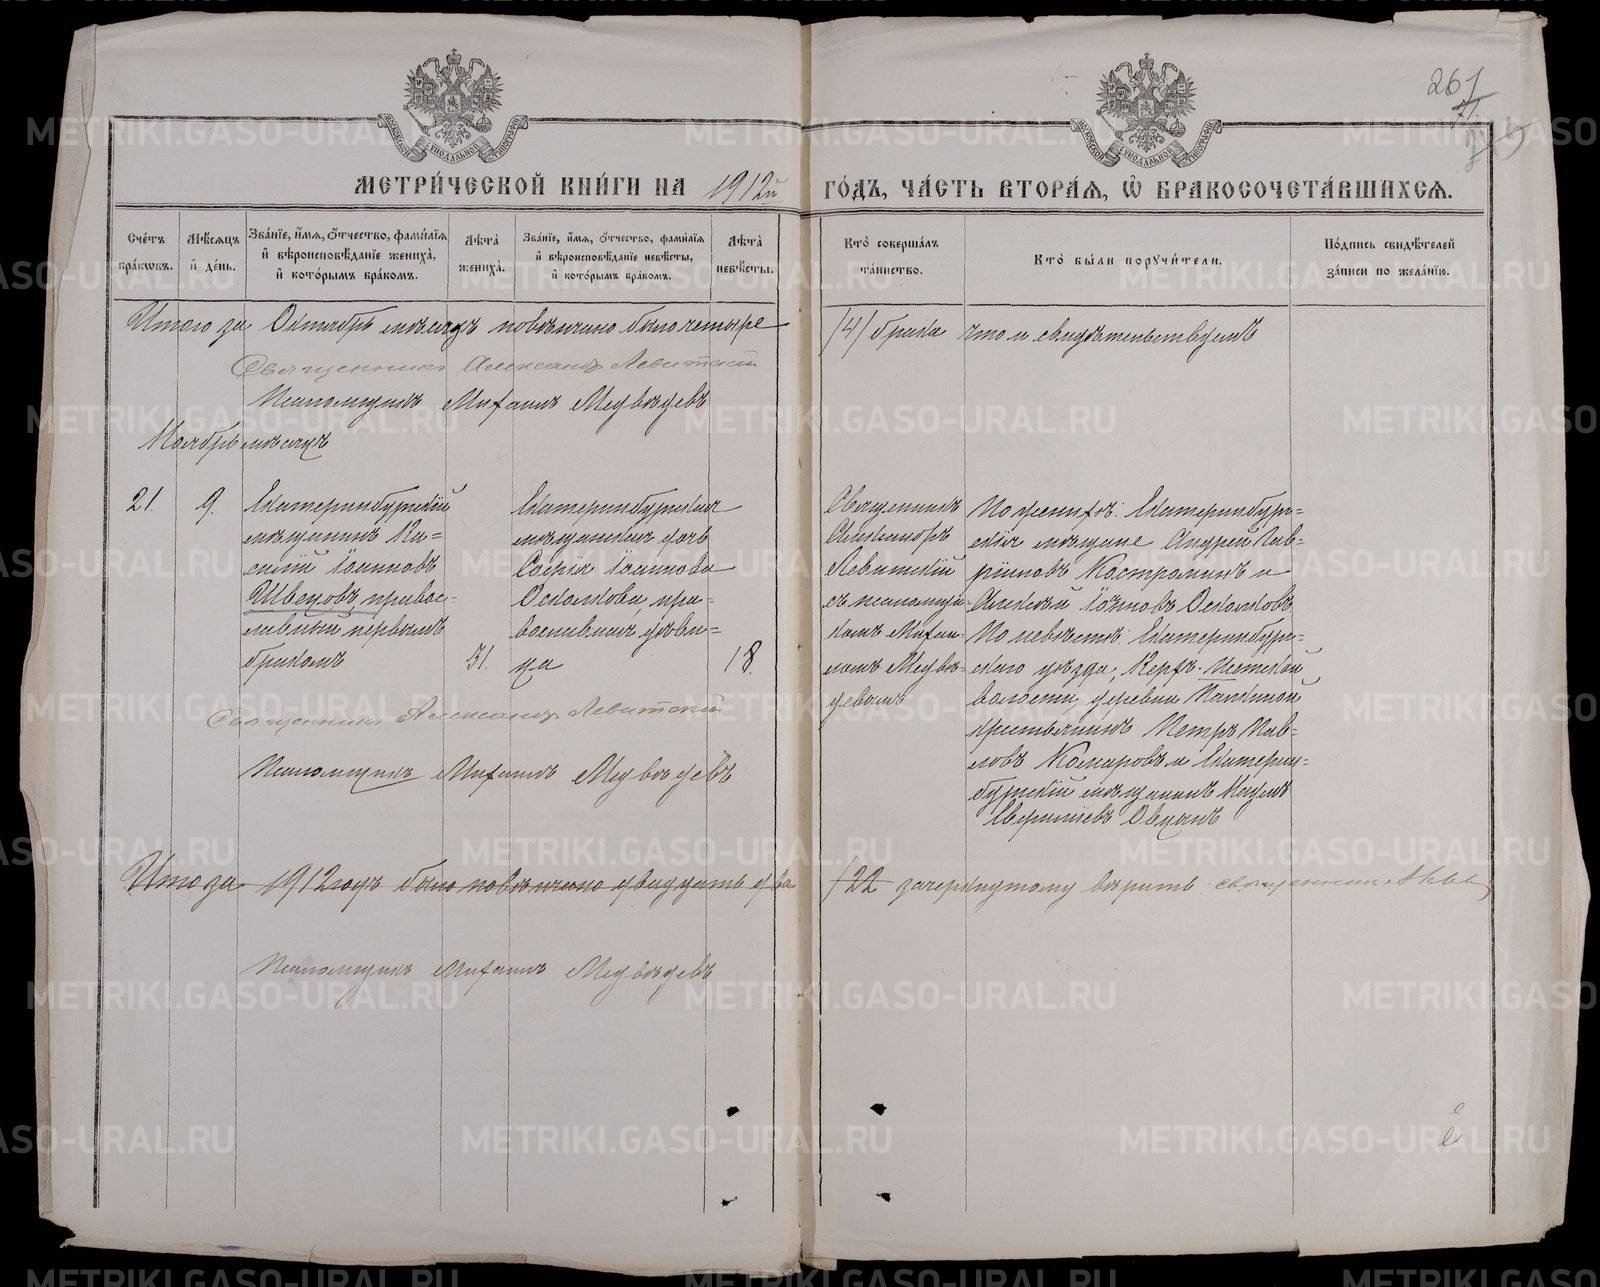 261
МЕТРИ́ЧЕСКОЙ КНИ́ГИ НА 1912й ГО́ДЪ, ЧА́СТЬ ВТОРА́Я, Ѿ БРАКОСОЧЕТА́ВШИХСЯ.
МОСКОВСКОЙ СѴНОДАЛЬНОЙ ТИПОГРАФІИ
МОСКОВСКОЙ СѴНОДАЛЬНОЙ ТИПОГРАФІИ
Сче́тъ бра́кѡвъ.
Мѣ́сяцъ и҆ де́нь.
Зва́ніе, и҆́мя, ѻ҆́тчество, фами́лія и҆ вѣроисповѣ́даніе жениха̀, и҆ кото́рымъ бра́комъ.
Лѣ́та жениха̀.
Зва́ніе, и҆́мя, ѻ҆́тчество, фами́лія и҆ вѣроисповѣ́даніе невѣ́сты, и҆ кото́рымъ бра́комъ.
Лѣ́та невѣ́сты.
Кто̀ соверша́лъ та́инство.
Кто̀ бы́ли пору́чи́тели.
По́дпись свидѣ́телей за́писи по жела́нію.
Итого за Октябрь мѣсяцъ повѣнчано было четыре /4/ брака что и свидѣтельствуемъ
Священникъ Александръ Левитскій
Псаломщикъ Михаилъ Медвѣдевъ
Ноябрь мѣсяцъ
21.
9.
Екатеринбургскій
мѣщанинъ Ка-
сьянъ Іоанновъ
Швецовъ, правос-
лавный первымъ
бракомъ
31.
Екатеринбургская
мѣщанская дочь
Софія Іоаннова
Осколкова, пра-
вославная, дѣви-
ца
18.
Священникъ
Александръ
Левитскій
съ псаломщи-
комъ Михаи-
ломъ Медвѣ-
девымъ
По женихѣ: Екатеринбург-
скіе мѣщане Андрей Гав-
риловъ Костроминъ и
Алексѣй Іоанновъ Осколковъ
По невѣстѣ: Екатеринбург-
скаго уѣзда, Верх-Исетской
волости, деревни Палкиной
крестьянинъ Петръ Пав-
ловъ Комаровъ и Екатерин-
бургскій мѣщанинъ
Овчинъ
Священникъ Александръ Левитскій
Псаломщикъ Михаилъ Медвѣдевъ
Итого за 1912 годъ было повѣнчано двадцать два /22 зачеркнутому вѣрить священникъ
Псаломщикъ Михаилъ Медвѣдевъ
METRIKI.GASO-URAL.RU